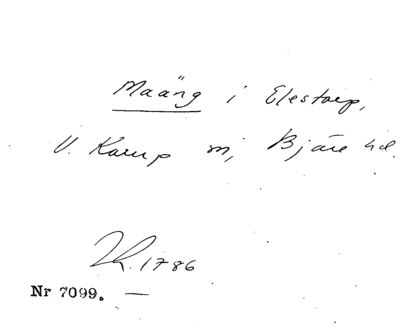 Maäng i Elestorp,
V. Karup sn, Bjäre hd.
1786
Nr 7099. —